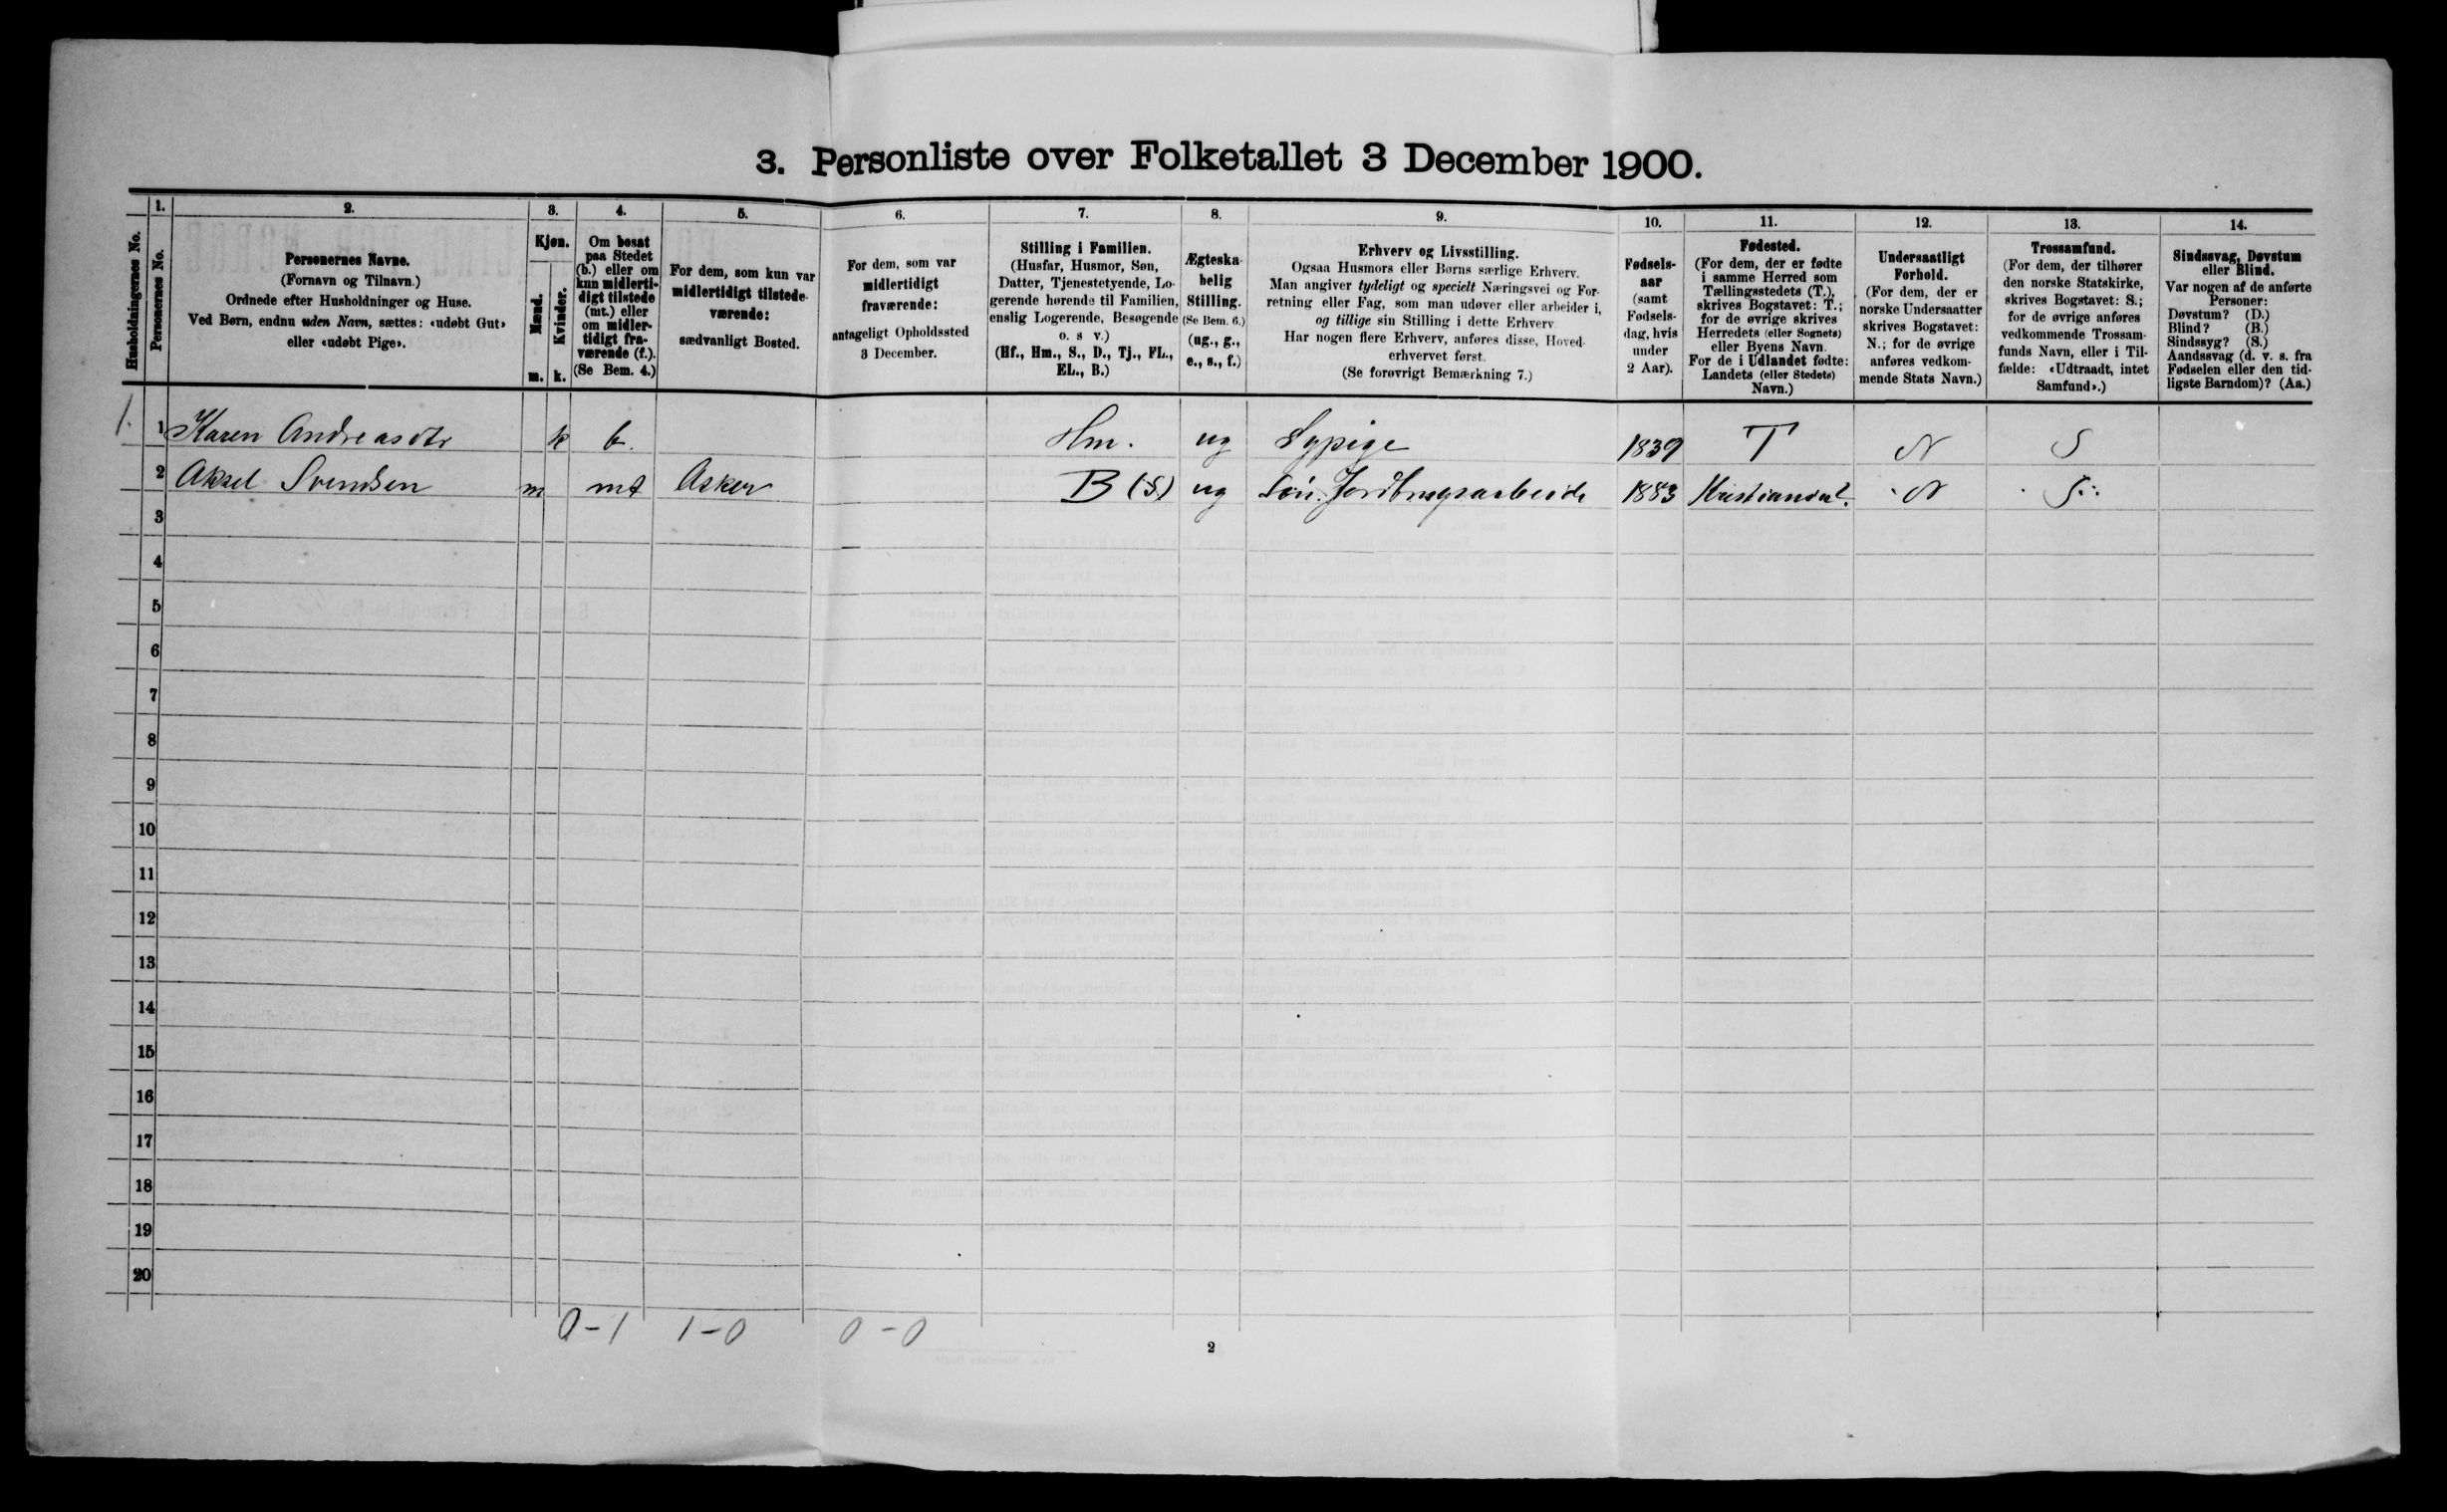 3. Personliste over Folketallet 3 December 1900.
Husholdningernes No.
1.
Personernes No.
2.
Personernes Navne.
(Fornavn og Tilnavn.)
Ordnede efter Husholdninger og Huse.
Ved Børn, endnu uden Navn, sættes: «udøbt Gut»
eller «udøbt Pige».
3.
Kjøn.
Mænd.
Kvinder.
m. k.
4.
Om bosat
paa Stedet
(b.) eller om
kun midlerti-
digt tilstede
(mt.) eller
om midler-
tidigt fra-
værende (f.).
(Se Bem. 4.)
5.
For dem, som kun var
midlertidigt tilstede-
værende:
sædvanligt Bosted.
6.
For dem, som var
midlertidigt
fraværende:
antageligt Opholdssted
3 December.
7.
Stilling i Familien.
(Husfar, Husmor, Søn,
Datter, Tjenestetyende, Lo-
gerende hørende til Familien,
enslig Logerende, Besøgende
o. s v.)
(Hf., Hm., S., D., Tj., FL.,
EL., B.)
8.
Ægteska-
belig
Stilling.
(Se Bem. 6.)
(ug., g.,
e., s., f.)
9.
Erhverv og Livsstilling.
Ogsaa Husmors eller Børns særlige Erhverv.
Man angiver tydeligt og specielt Næringsvei og For-
retning eller Fag, som man udøver eller arbeider i,
og tillige sin Stilling i dette Erhverv.
Har nogen flere Erhverv, anføres disse, Hoved-
erhvervet først.
(Se forøvrigt Bemærkning 7.)
10.
Fødsels-
aar
(samt
Fødsels-
dag, hvis
under
2 Aar).
11.
Fødested.
(For dem, der er fødte
i samme Herred som
Tællingsstedets (T.),
skrives Bogstavet: T.;
for de øvrige skrives
Herredets (eller Sognets)
eller Byens Navn.
For de i Udlandet fødte:
Landets (eller Stedets)
Navn.)
12.
Undersaatligt
Forhold.
(For dem, der er
norske Undersaatter
skrives Bogstavet:
N.; for de øvrige
anføres vedkom-
mende Stats Navn.)
13.
Trossamfund.
(For dem, der tilhører
den norske Statskirke,
skrives Bogstavet: S.;
for de øvrige anføres
vedkommende Trossam-
funds Navn, eller i Til-
fælde: «Udtraadt, intet
Samfund».)
14.
Sindssvag, Døvstum
eller Blind.
Var nogen af de anførte
Personer:
Døvstum? (D.)
Blind? (B.)
Sindssyg? (S.)
Aandssvag (d. v. s. fra
Fødselen eller den tid-
ligste Barndom)? (Aa.)
1. 1 Karen Andreasdtr k b. Hm. ug Sypige 1839 T N S
2 Aksel Svendsen m mt Asker B (S) ug Jordbrugsarbeide 1883 N S.
3
4
5
6
7
8
9
10
11
12
13
14
15
16
17
18
19
20
0-1 1-0 0-0
2